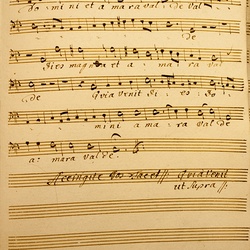 do mini et a mara val de val
de
dies magna et a ma ra val
de Quia venit di es do
mini a mara val de
a: mara valde.
Accingite Vos Sacer// Quia venit
ut Supra//